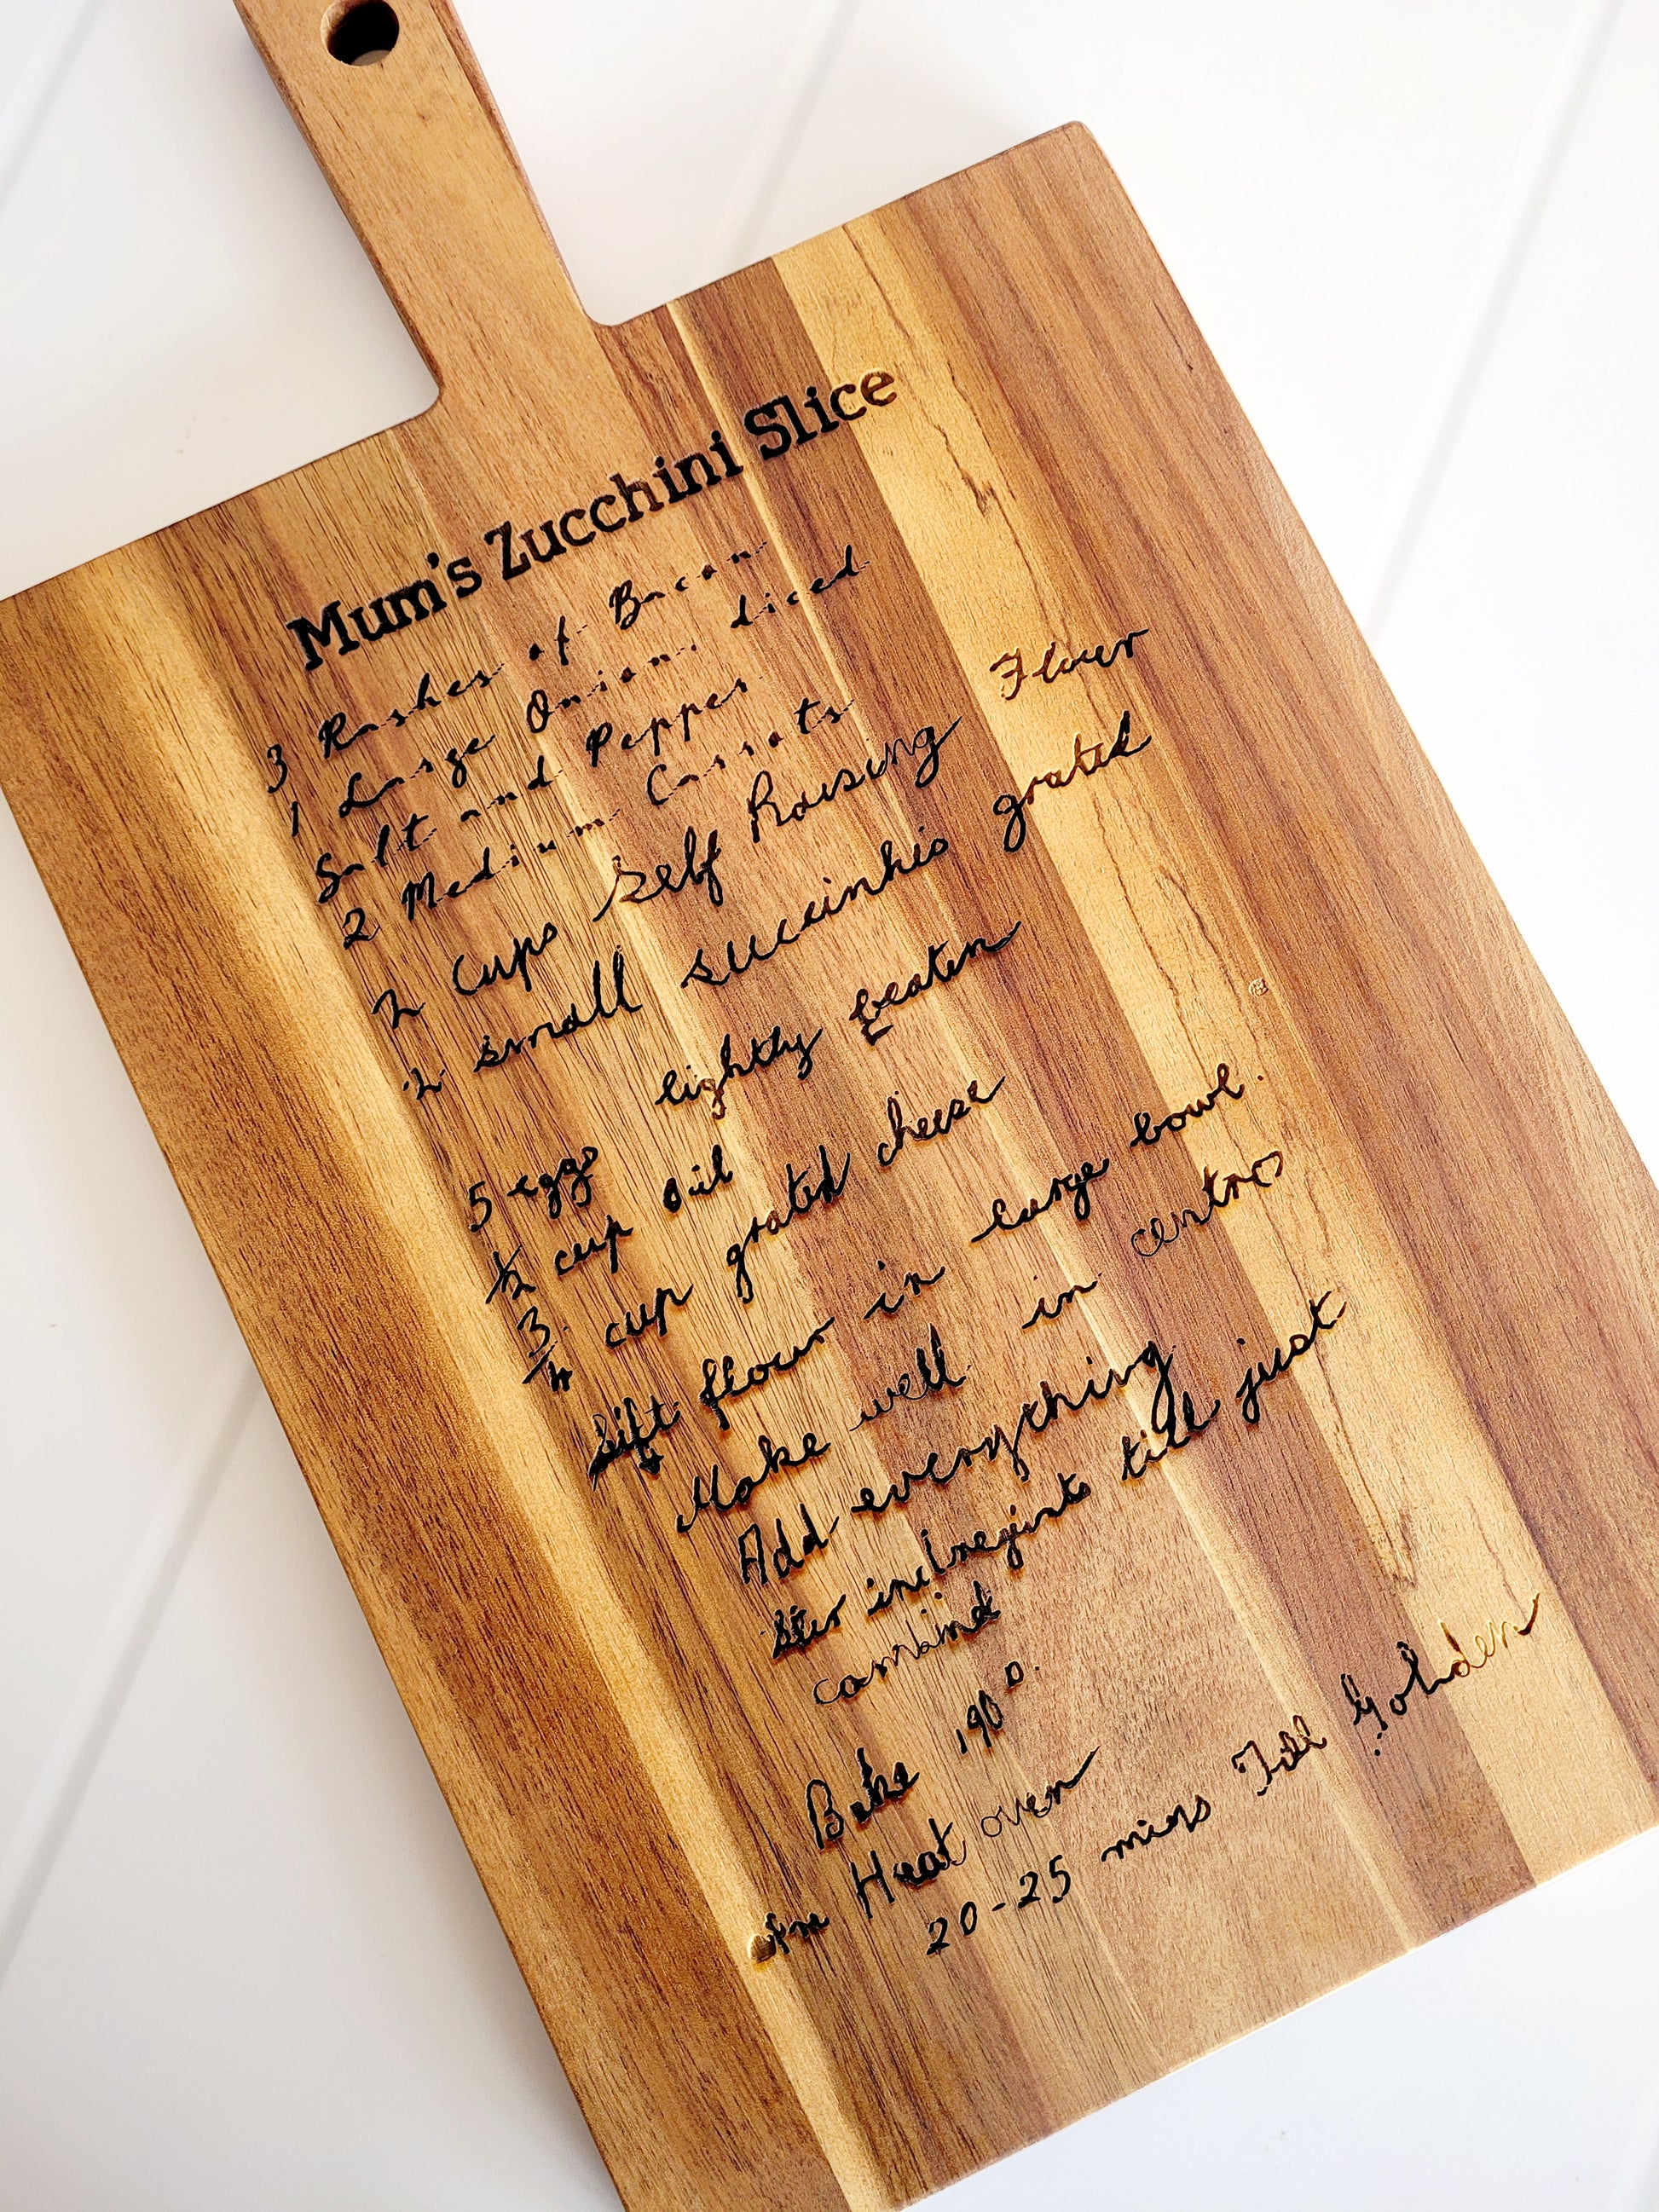 Mum's Zucchini Slice
3 Rashes of Bacon
1 Large Onion diced
Salt and Pepper
2 Medium Carrots
2 Cups Self Raising Flour
2 small succinhio grated
5 eggs lightly beaten
1/2 cup oil
3/4 cup grated cheese
Sift flour in large bowl.
Make well in centre
Add everything
Ster indregints till just
combind
Bake 190°.
Heat oven
20-25 mins Till Golden